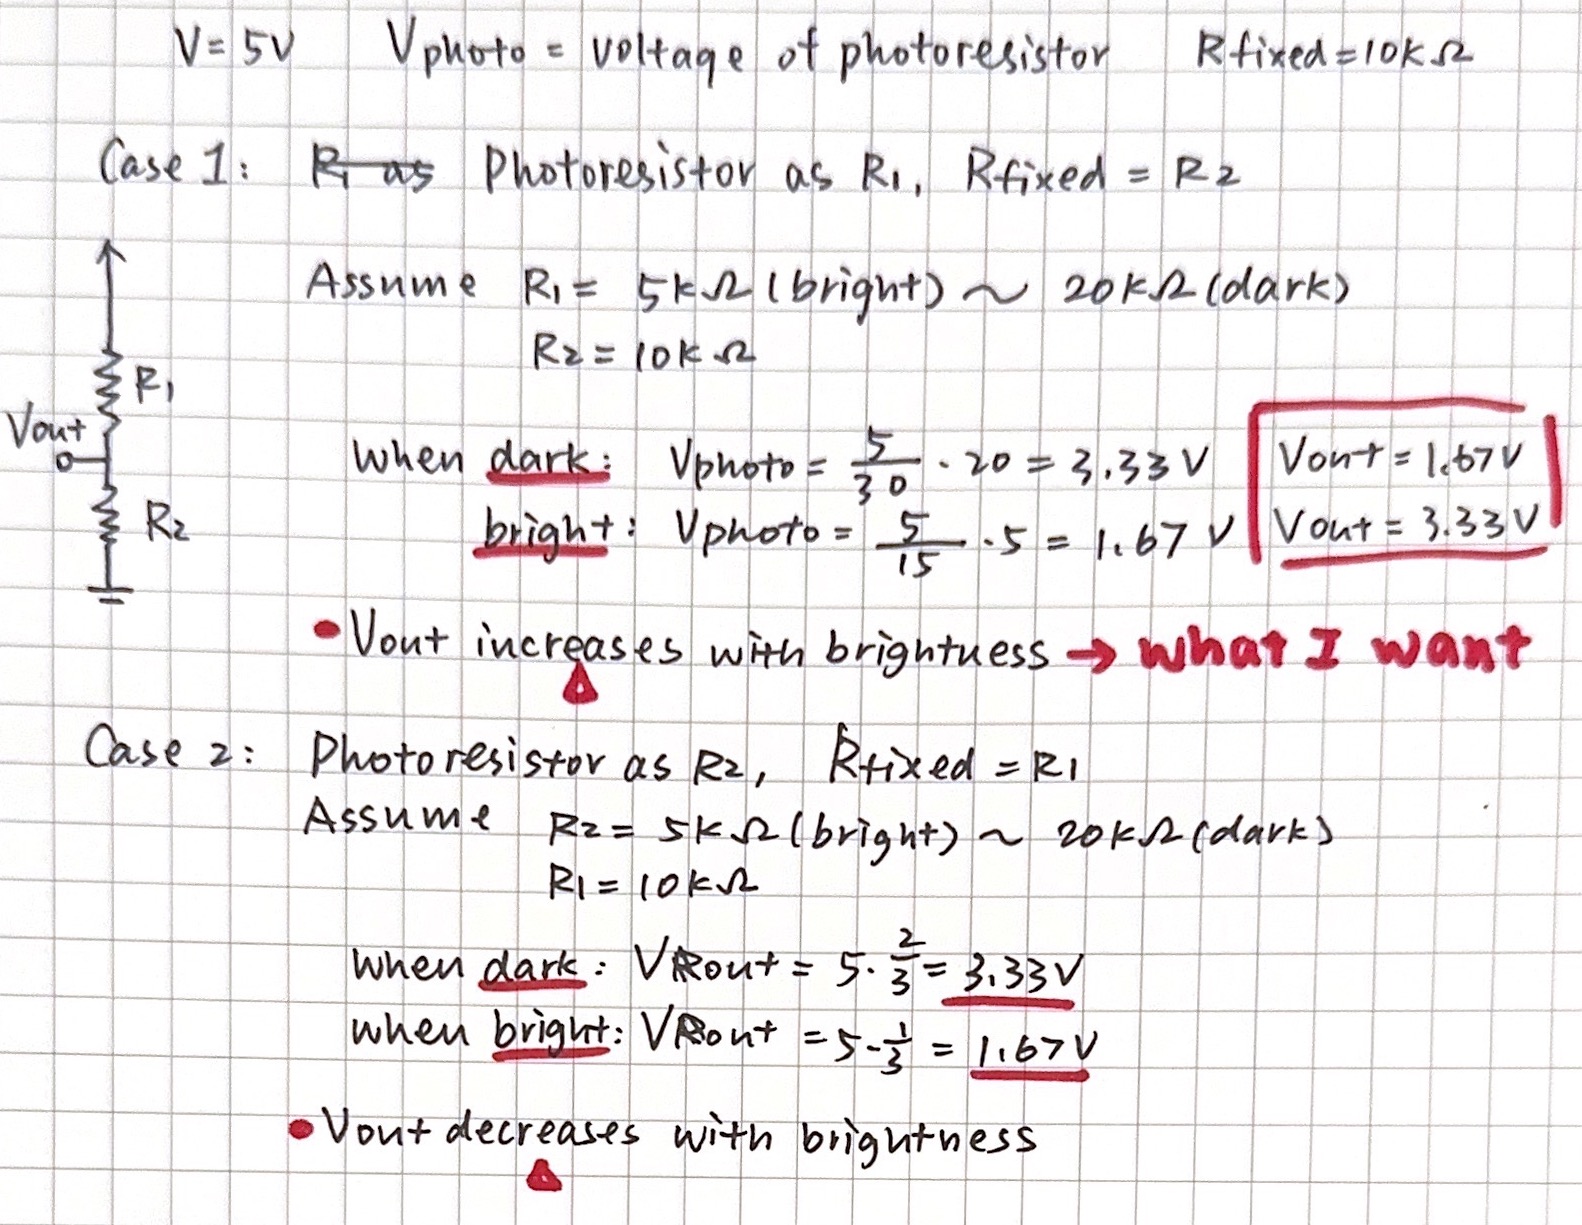 V = 5V Vphoto = voltage of photoresistor Rfixed = 10kΩ
Case 1: R1 as Photoresistor as R1, Rfixed = R2
Assume R1 = 5kΩ (bright) ~ 20kΩ (dark)
R2 = 10kΩ
R1
Vout
R2
When dark: Vphoto = 5/30 · 20 = 3.33 V Vout = 1.67V
bright: Vphoto = 5/15 · 5 = 1.67 V Vout = 3.33V
• Vout increases with brightness → what I want
Case 2: Photoresistor as R2, Rfixed = R1
Assume R2 = 5kΩ (bright) ~ 20kΩ (dark)
R1 = 10kΩ
When dark: Vout = 5 · 2/3 = 3.33V
When bright: Vout = 5 · 1/3 = 1.67V
• Vout decreases with brightness